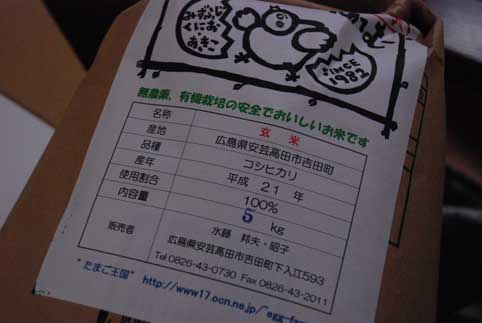 みずふじ
くにお
あきこ
SINCE
1982
無農薬、有機栽培の安全でおいしいお米です
名称 玄 米
産地 広島県安芸高田市吉田町
品種 コシヒカリ
産年 平成 21 年
使用割合 100%
内容量 5 kg
販売者 水藤 邦夫・昭子
広島県安芸高田市吉田町下入江593
Tel 0826-43-0730 Fax 0826-43-2011
"たまご王国" http://www17.ocn.ne.jp/~egg-far